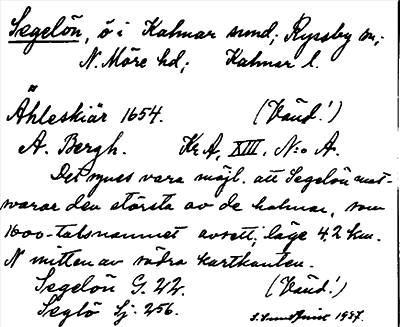 Segelön, ö i Kalmar sund; Ryssby sn;
N. Möre hd; Kalmar l.
Ähleskiär 1654. (Vänd!)
A. Bergh. Kr A, XIII, N:o A.
Det synes vara möjl. att Segelön mot-
svarar den största av de holmar, som
1600-talsnamnet avsett; läge 4.2 km.
N mitten av södra kartkanten.
Segelön G. 22. (Vänd!)
Seglö Sj. 256.
1937.